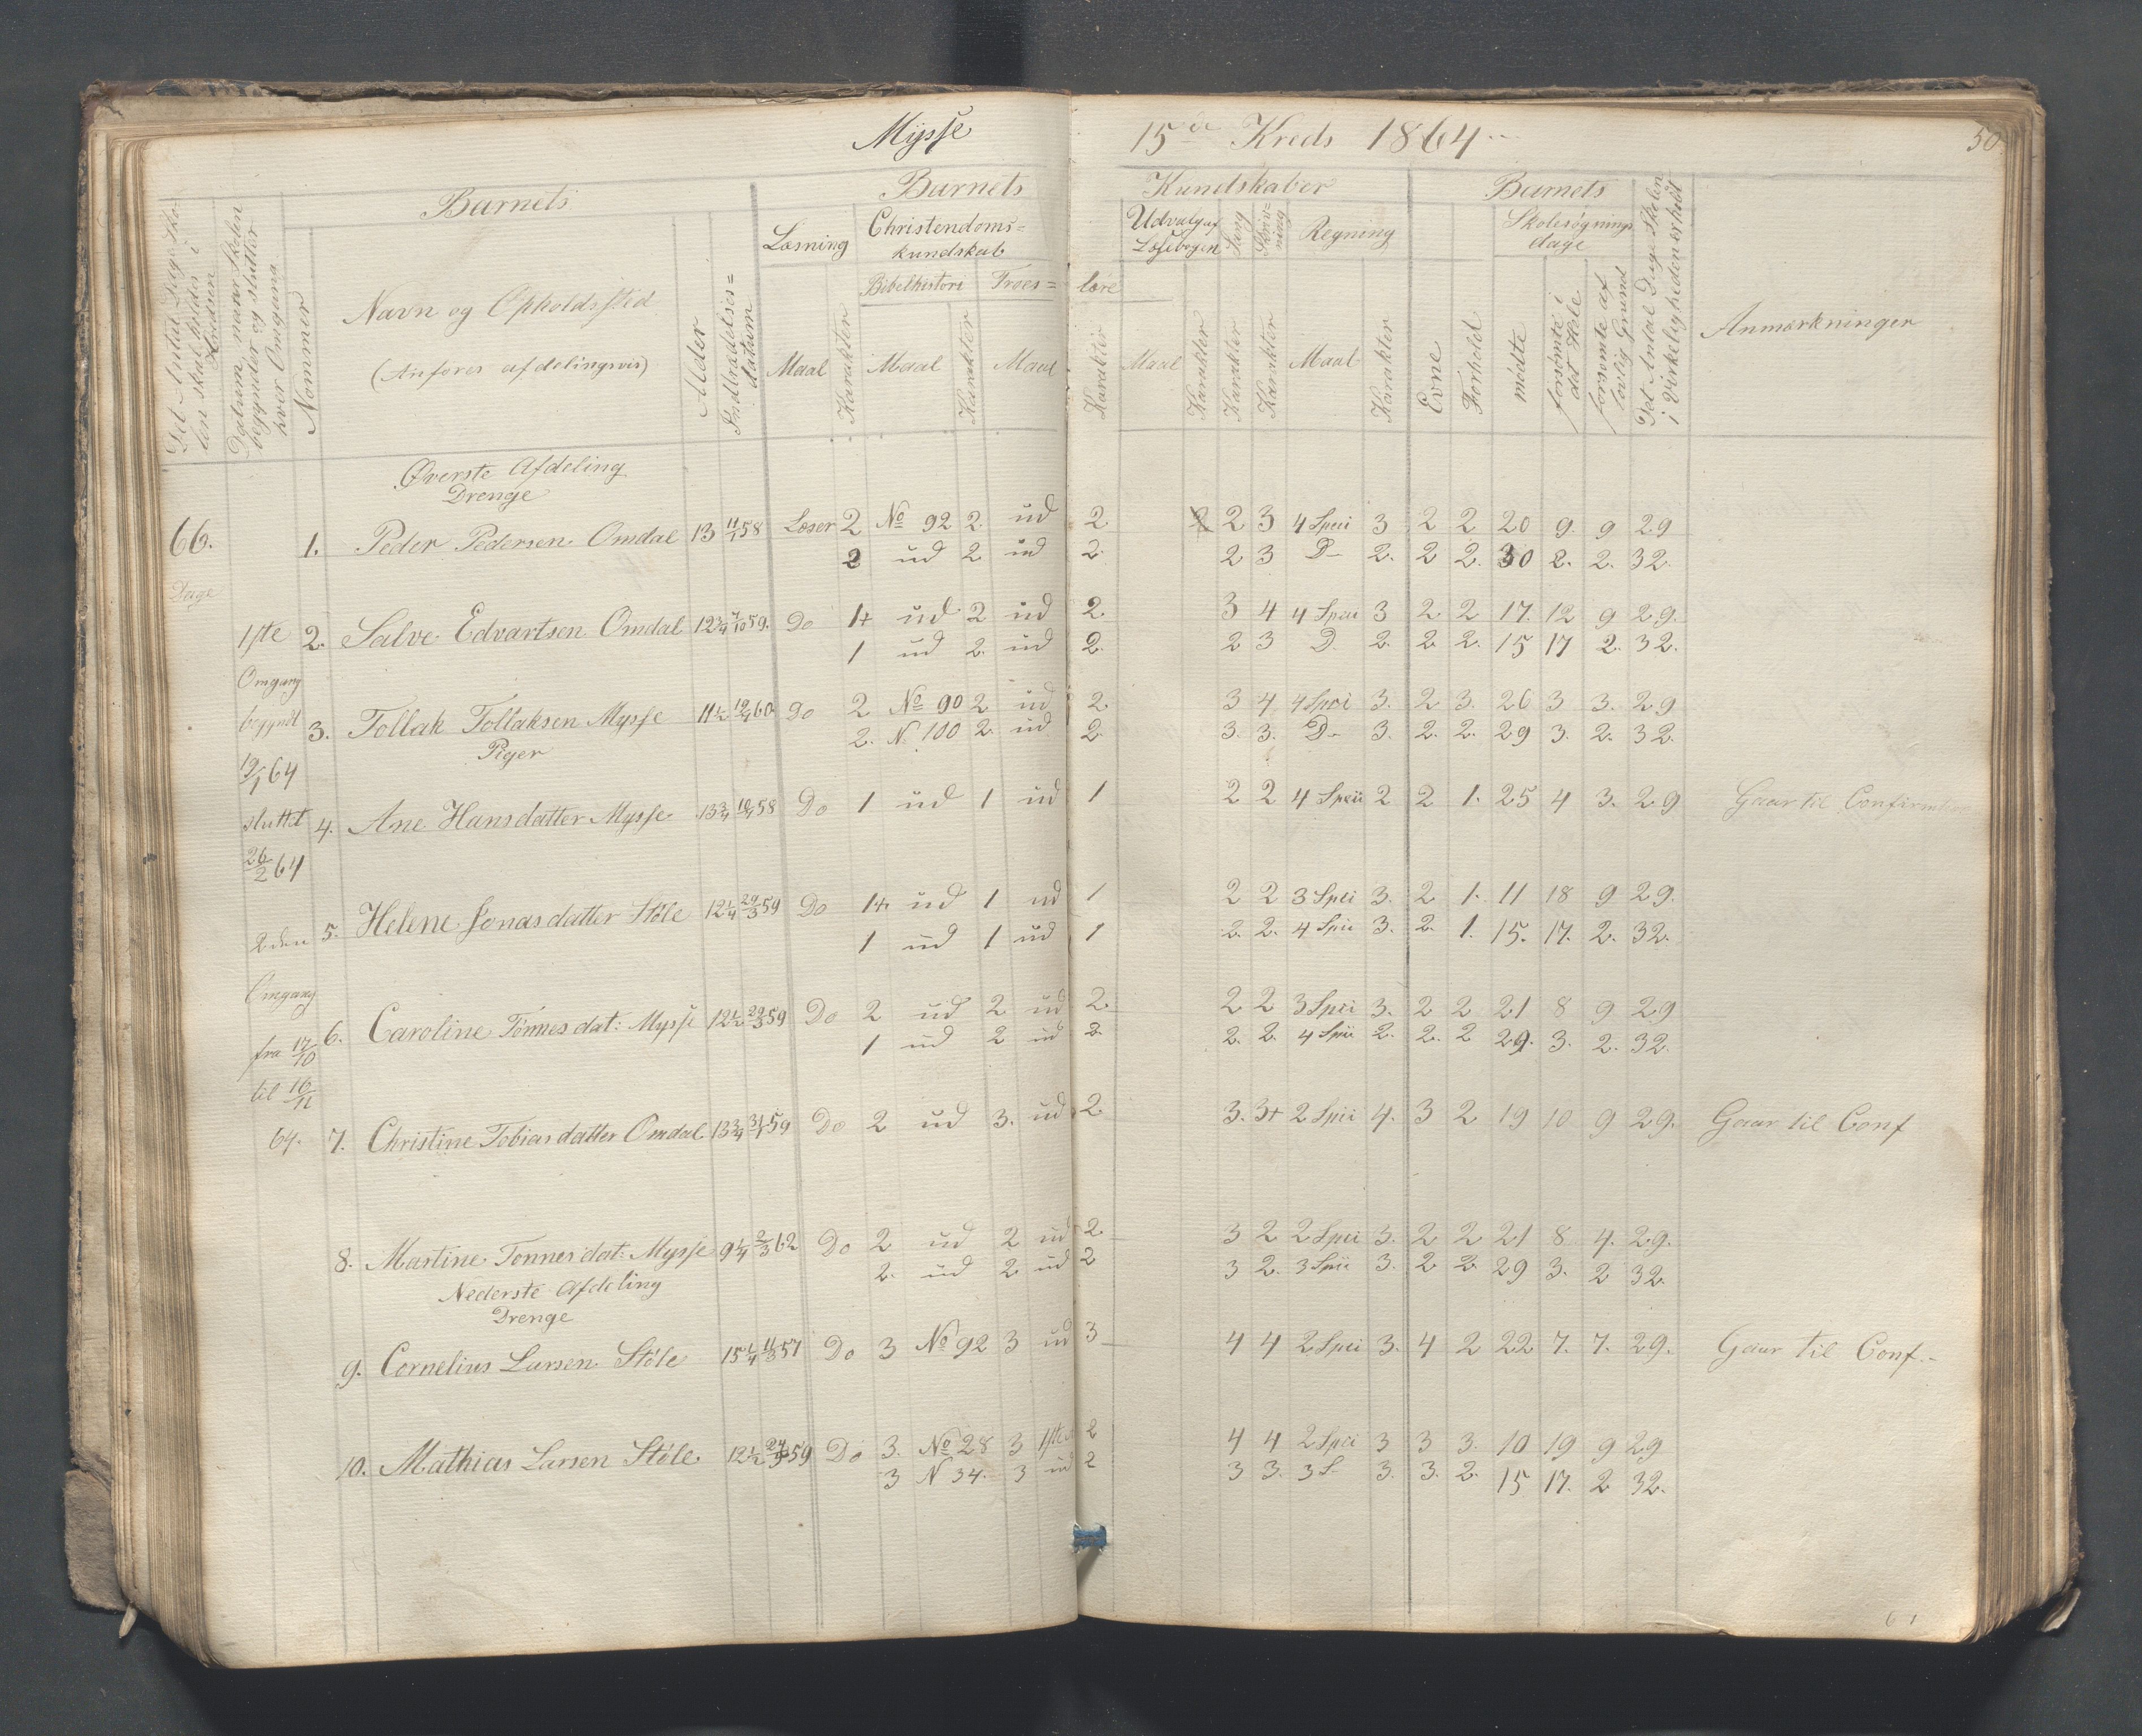 Mysse 15de Kreds 1864 50
Det Antal Dage Skolen skal holdes i Kredsen
Datum, naar Skolen begynder og slutter hver Omgang
Nommer
Barnets
Navn og Opholdssted
(Anføres afdelingsvis)
Alder
Indtrædelsesdatum
Barnets Kundskaber
Læsning
Maal Karakter
Christendoms=kundskab
Bibelhistori Troes=lære
Maal Karakter Maal Karakter
Udvalg af Læsebogen
Maal Karakter
Sang Karakter
Skrivning Karakter
Regning
Maal Karakter
Barnets
Evne Forhold
Skolesøgnings dage
mødte
forsømte i det Hele
forsømte af lovlig Grund
Det Antal Dage Skolen i Virkeligheden er holdt
Anmærkninger
66.
Dage
1ste
Omgang
begyndt
19/1 64
sluttet
26/2 64
2den
Omgang
fra 17/10
til 16/11
64.
Øverste Afdeling
Drenge
1. Peder Pedersen Omdal 13 11/1 58 Læser 2 No 92 2. ud 2. 2 2 3 4 Speci 3 2 2 20 9. 9 29
2 ud 2 ud 2. 2 3 D- 2. 2 2. 30 2. 2. 32.
2. Salve Edvartsen Omdal 12 3/4 7/10 59. Do 1+ ud 2 ud 2. 3 4 4 Speci 3 2 2 17. 12 9 29.
1 ud 2. ud 2. 2 3 D. 2. 2 2. 15 17 2. 32.
3. Tollak Tollaksen Mysse 11 1/2 19/1 60 Do 2 No 90 2 ud 2. 3 4 4 Speci 3. 2 3. 26 3 3. 29
2. N. 100 2. ud 2. 3. 3. D- 3. 2. 2. 29 3. 2. 32.
Piger
4. Ane Hansdatter Mysse 13 3/4 10/1 58 Do 1 ud 1 ud 1 2 2 4 Speci 2 2 1. 25 4 3. 29 Gaar til Confirmation
5. Helene Jonasdatter Støle 12 1/4 29/3 59 Do 1+ ud 1 ud 1 2 2 3 Speci 3. 2 1. 11 18 9 29.
1 ud 1 ud 1 2. 2. 4 Speci 3. 2. 1. 15. 17. 2. 32.
6. Caroline Tønnesdat: Mysse 12 1/2 29/3 59 Do 2 ud 2 ud 2. 2 2 3 Speci 3. 2 2 21 8 9 29
1 ud 2 ud 2. 2. 2. 4 Speci 2. 2. 2 29. 3. 2. 32.
7. Christine Tobiasdatter Omdal 13 3/4 31/1 59 Do 2 ud 3. ud 2. 3. 3+ 2 Speci 4. 3 2 19 10 9 29. Gaar til Conf
8. Martine Tønnesdat: Mysse 9 1/4 2/3 62 Do 2 ud 2 ud 2. 3 2 2 Speci 3. 2 2 21 8 4. 29.
2. ud 2 ud 2 3 2. 3 Speci 3. 2 2. 29 3. 2 32.
Nederste Afdeling
Drenge
9. Cornelius Larsen Støle 15 1/4 11/3 57 Do 3 No 92 3 ud 3 4 4 2 Speci 3. 4 2 22 7. 7. 29. Gaar til Conf.-
10. Mathias Larsen Støle 12 1/2 59 Do 3. No 28 3 1ste 2 4 4 2 Speci 3 3 3. 10 19 9 29
3 N 34. 3 ud 2 3 3. 3 S- 3. 3. 2. 15 17. 2 32.